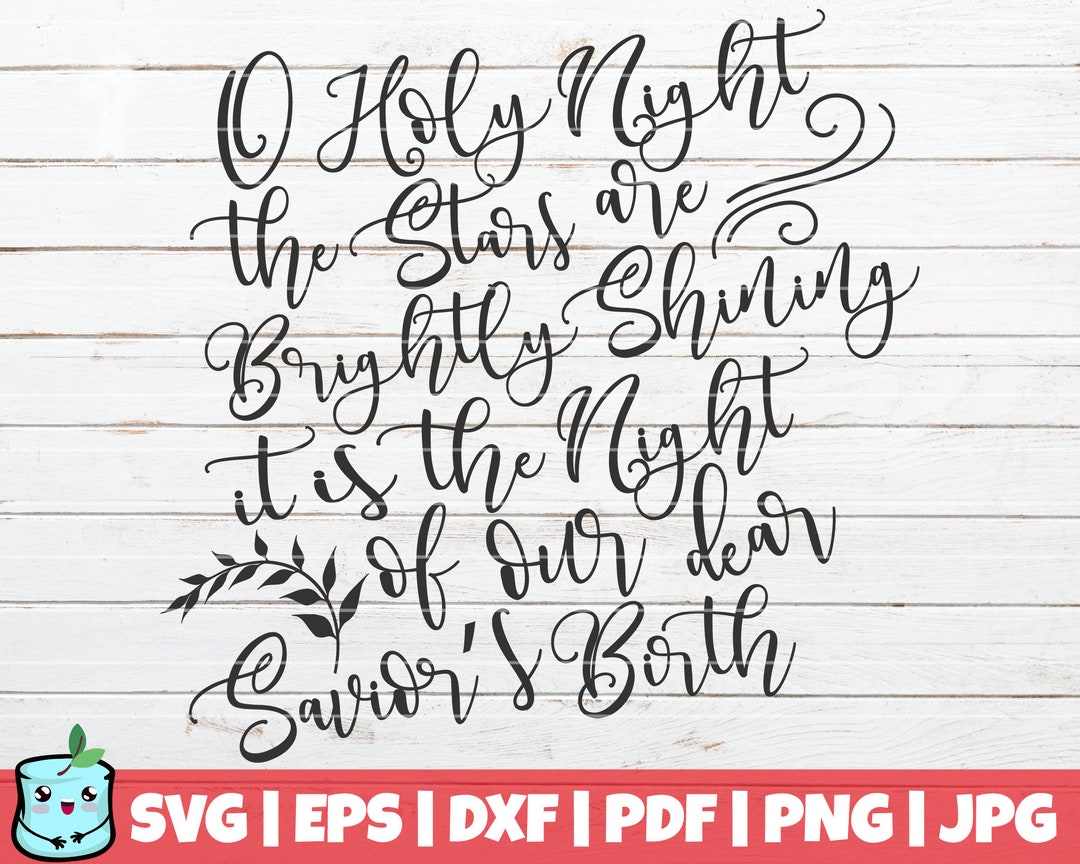 O Holy Night
the Stars are
Brightly Shining
it is the Night
of our dear
Savior's Birth
SVG | EPS | DXF | PDF | PNG | JPG